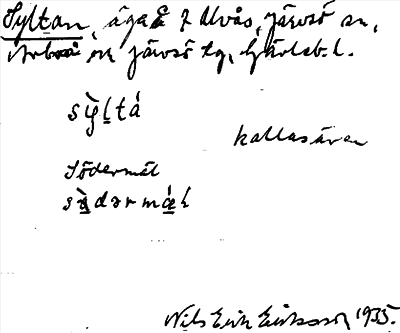 Syltan, äga å 7 Alvås, Järvsö sn,
Arbrå och Järvsö tg, Gävleb. l.
sỳltá
kallas även
Södermál
sø̀dərmál
Nils Erik Eriksson 1935.